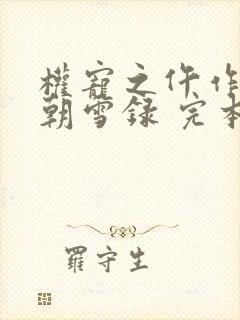 權寵之仵作
朝雪録 完本
羅守生